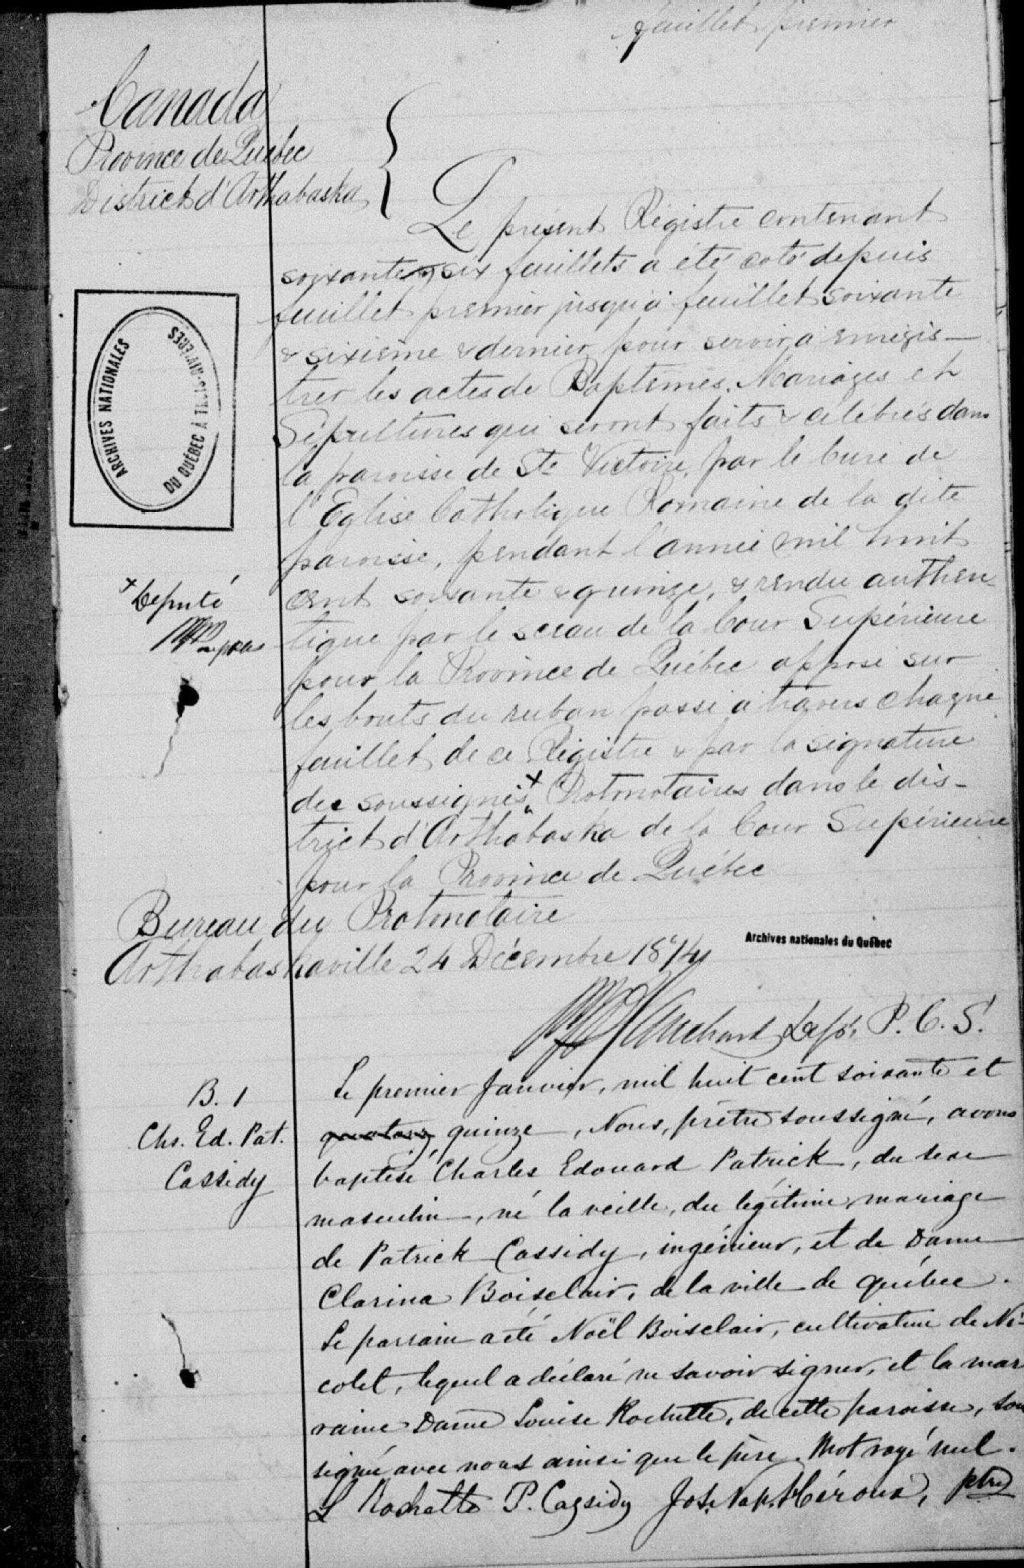 feuillet premier
Canada
Province de Québec
District d'Arthabaska
Le présent Régistre contenant
soixante & six feuillets a été coté depuis
feuillet premier jusqu'à feuillet soixante
& sixième & dernier, pour servir à enrégis-
trer les actes de Baptêmes, Mariages et
Sépultures qui seront faits & célébrés dans
la paroisse de Ste Victoire, par le Curé de
l'Eglise Catholique Romaine de la dite
paroisse, pendant l'année mil huit
cent soixante & quinze, & rendu authen
tique par le sceau de la Cour Supérieure
pour la Province de Québec apposé sur
les bouts du ruban passé à travers chaque
feuillet de ce Régistre & par la signature
des soussignés + Protonotaires dans le dis-
trict d'Arthabaska de la Cour Supérieure
pour la Province de Québec
ARCHIVES NATIONALES
DU QUÉBEC À TROIS-RIVIÈRES
+ Député
Bureau du Protonotaire
Arthabaskaville 24 Décembre 1874
Archives nationales du Québec
Dep. P. C. S.
B. 1
Chs. Ed. Pat.
Cassidy
Le premier Janvier, mil huit cent soixante et
quatorze quinze, Nous, prêtre soussigné, avons
baptisé Charles Edouard Patrick, du sexe
masculin, né la veille, du légitime mariage
de Patrick Cassidy, ingénieur, et de Dame
Clarina Boisclair, de la ville de québec.
Le parrain a été Noël Boisclair, cultivateur de Ni-
colet, lequel a déclaré ne savoir signer, et la mar
raine Dame Louise Rochette, de cette paroisse, sou
signé avec nous ainsi que le père. Mot rayé nul.
L Rochette P. Cassidy Jos. Nap. Héroux, ptre